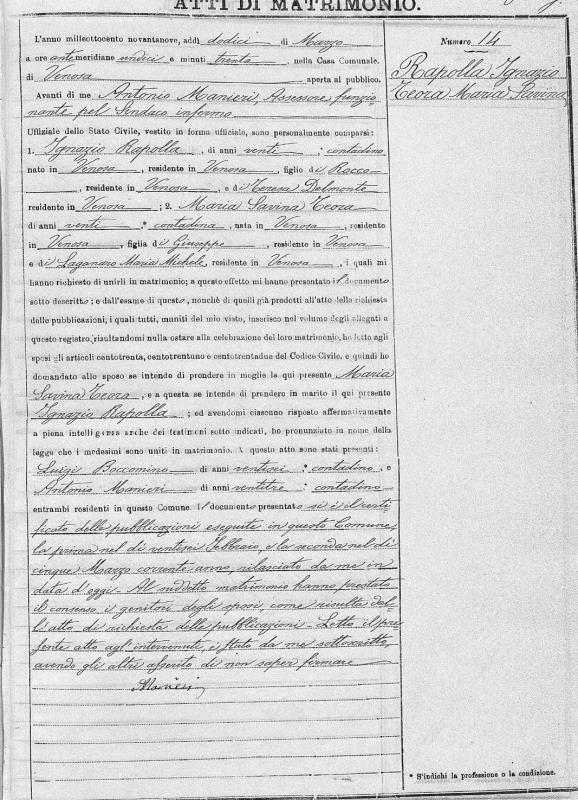 ATTI DI MATRIMONIO.
L'anno millottocento novantanove, addì dodici di Marzo
a ore antemeridiane undici e minuti trenta, nella Casa Comunale
di Venosa aperta al pubblico.
Avanti di me Antonio Manieri, Assessore funzio-
nante pel Sindaco infermo
Uffiziale dello Stato Civile, vestito in forma ufficiale, sono personalmente comparsi:
1. Ignazio Rapolla, di anni venti; contadino
nato in Venosa, residente in Venosa, figlio di Rocco
, residente in Venosa, e di Teresa Delmonte
residente in Venosa; 2. Maria Savina Teora
di anni venti, * contadina, nata in Venosa, residente
in Venosa, figlia di Giuseppe, residente in Venosa
e di Lagandro Maria Michele, residente in Venosa, i quali mi
hanno richiesto di unirli in matrimonio; a questo effetto mi hanno presentato il documento
sotto descritto; e dall'esame di questo, nonchè di quelli già prodotti all'atto della richiesta
delle pubblicazioni, i quali tutti, muniti del mio visto, inserisco nel volume degli allegati a
questo registro, risultandomi nulla ostare alla celebrazione del loro matrimonio, ho letto agli
sposi gli articoli centotrenta, centotrentuno e centotrentadue del Codice Civile, e quindi ho
domandato allo sposo se intende di prendere in moglie la qui presente Maria
Savina Teora, e a questa se intende di prendere in marito il qui presente
Ignazio Rapolla; ed avendomi ciascuno risposto affermativamente
a piena intelligenza anche dei testimoni sotto indicati, ho pronunziato in nome della
legge che i medesimi sono uniti in matrimonio. A questo atto sono stati presenti:
Luigi Boccomino di anni ventisei; contadino, e
Antonio Manieri di anni ventitre; contadino
entrambi residenti in questo Comune. Il documento presentato si è il certi-
ficato delle pubblicazioni eseguite in questo Comune,
la prima nel dì ventisei Febbraio, e la seconda nel dì
cinque Marzo corrente anno, rilasciato da me in
data d'oggi - Al suddetto matrimonio hanno prestato
il consenso i genitori degli sposi, come risulta dal-
l'atto di richiesta delle pubblicazioni. Letto il pre
sente atto agl'intervenuti, è stato da me sottoscritto,
avendo gli altri asserito di non saper firmare
Manieri
Numero 14
Rapolla Ignazio
Teora Maria Savina
* S'indichi la professione o la condizione.